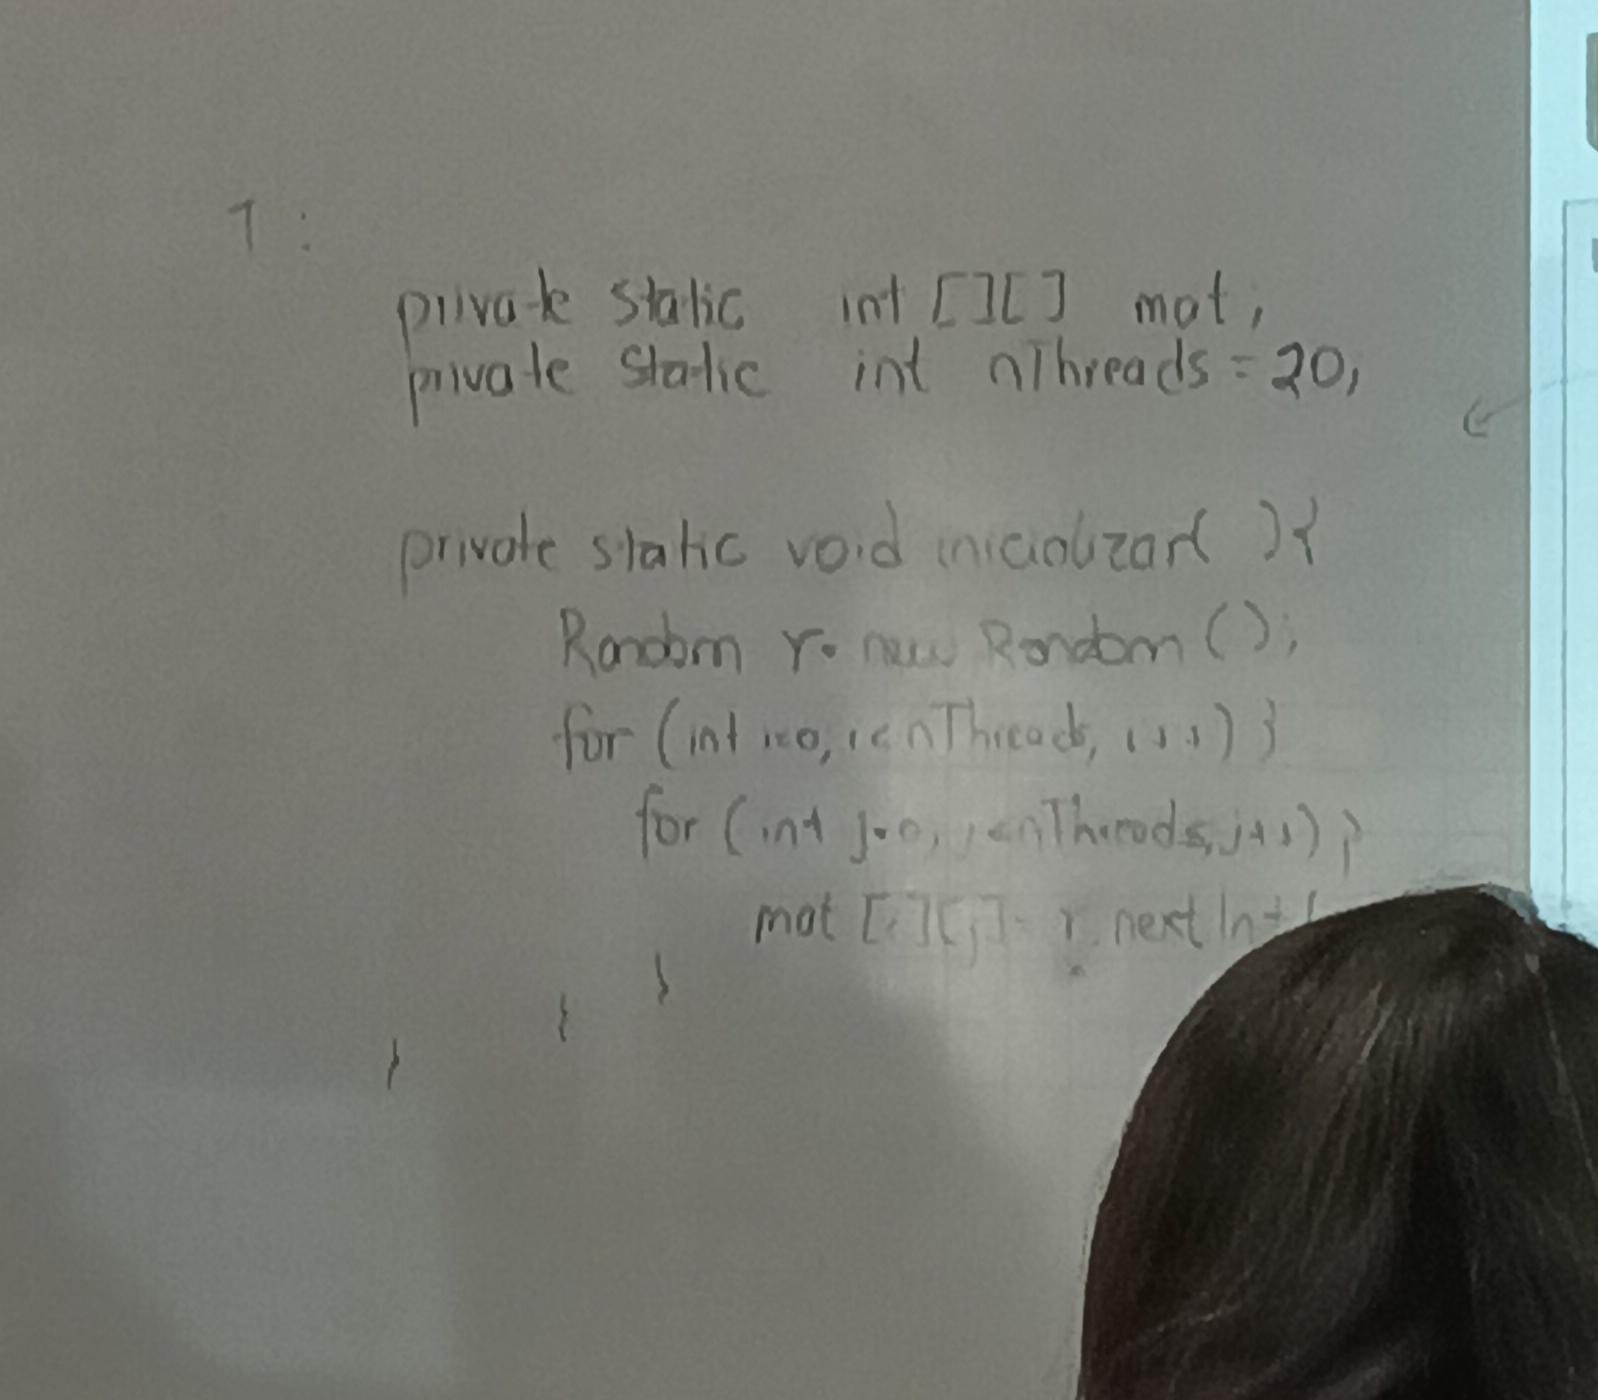 1:
private static int [][] mat;
private static int nThreads = 20;
private static void inicializar( ){
Random r = new Random ();
for (int i=0; i<nThreads; i++) {
for (int j=0; j<nThreads; j++) {
mat [i][j] = r.nextInt (
}
}
}